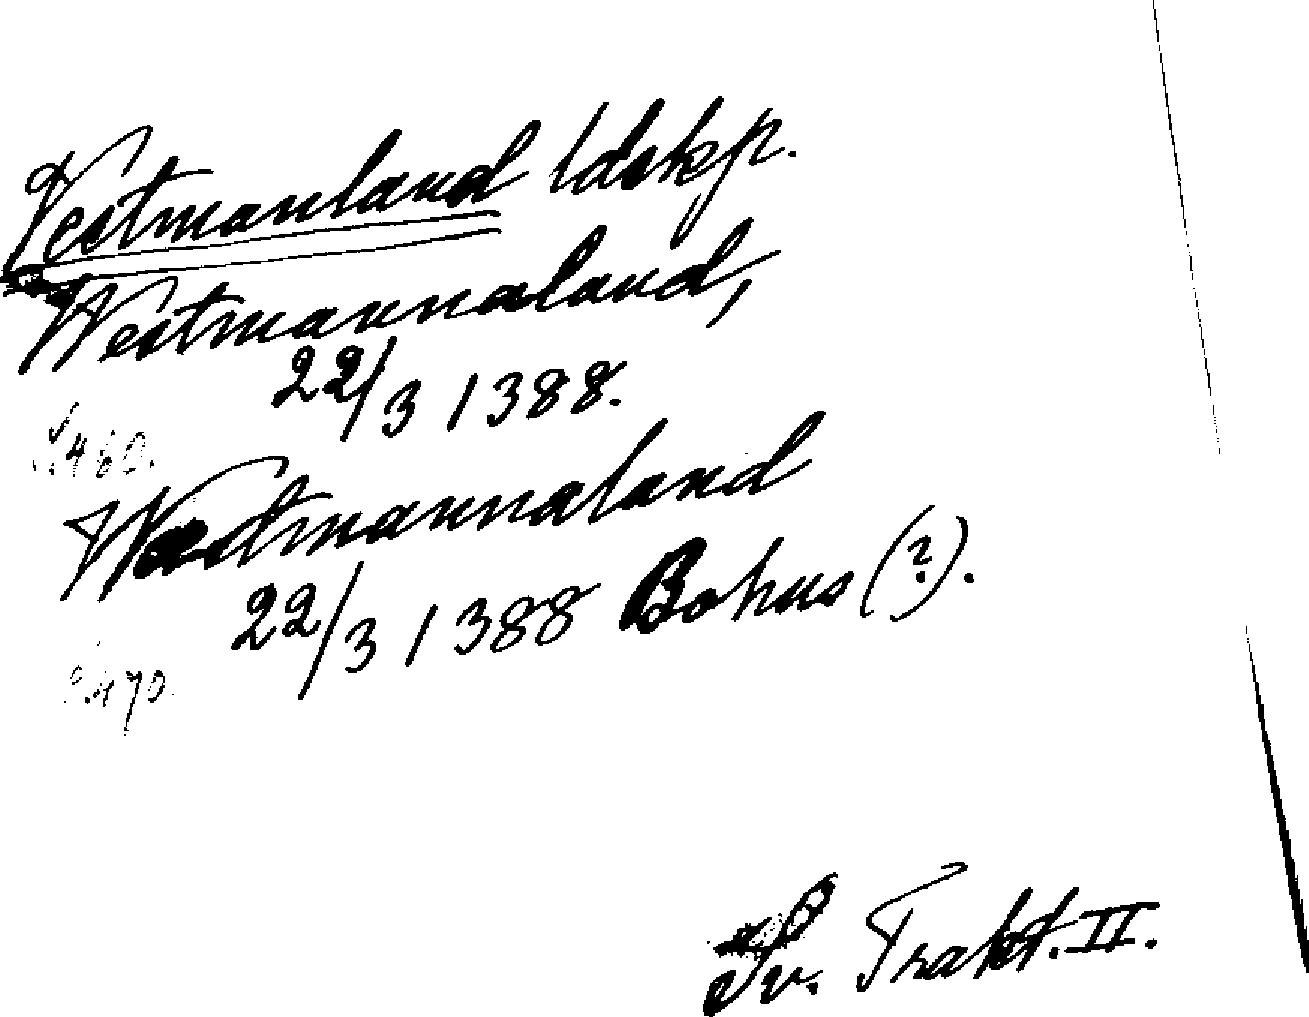 Vestmanland ldskp.
Westmannaland,
22/3 1388.
S. 460.
Westmannaland
22/3 1388 Bohus (?).
S. 470.
Sv. Trakt. II.